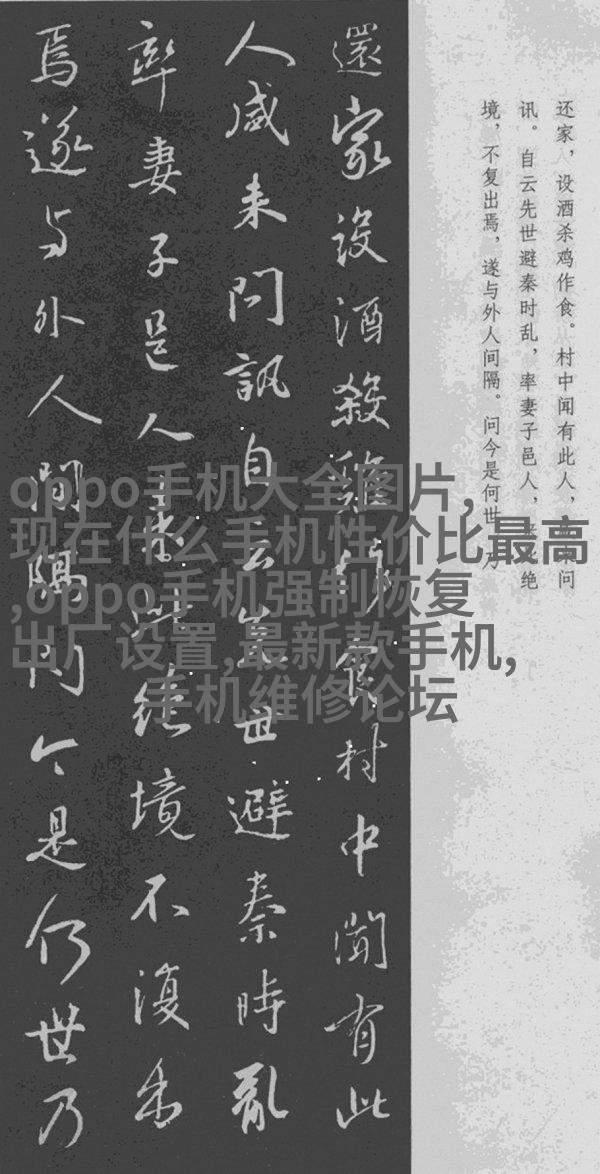 还家，设酒杀鸡作食。村中闻有此人，咸来问
讯。自云先世避秦时乱，率妻子邑人，来此绝
境，不复出焉，遂与外人间隔。问今是何世，乃
還家設酒殺雞作食村中聞有此
人咸来問訊自云先世避秦時亂
率妻子邑人来此絶境不復出
焉遂与外人間隔問今是何世乃
oppo手机大全图片,
现在什么手机性价比最高
,oppo手机强制恢复
出厂设置,最新款手机,
手机维修论坛